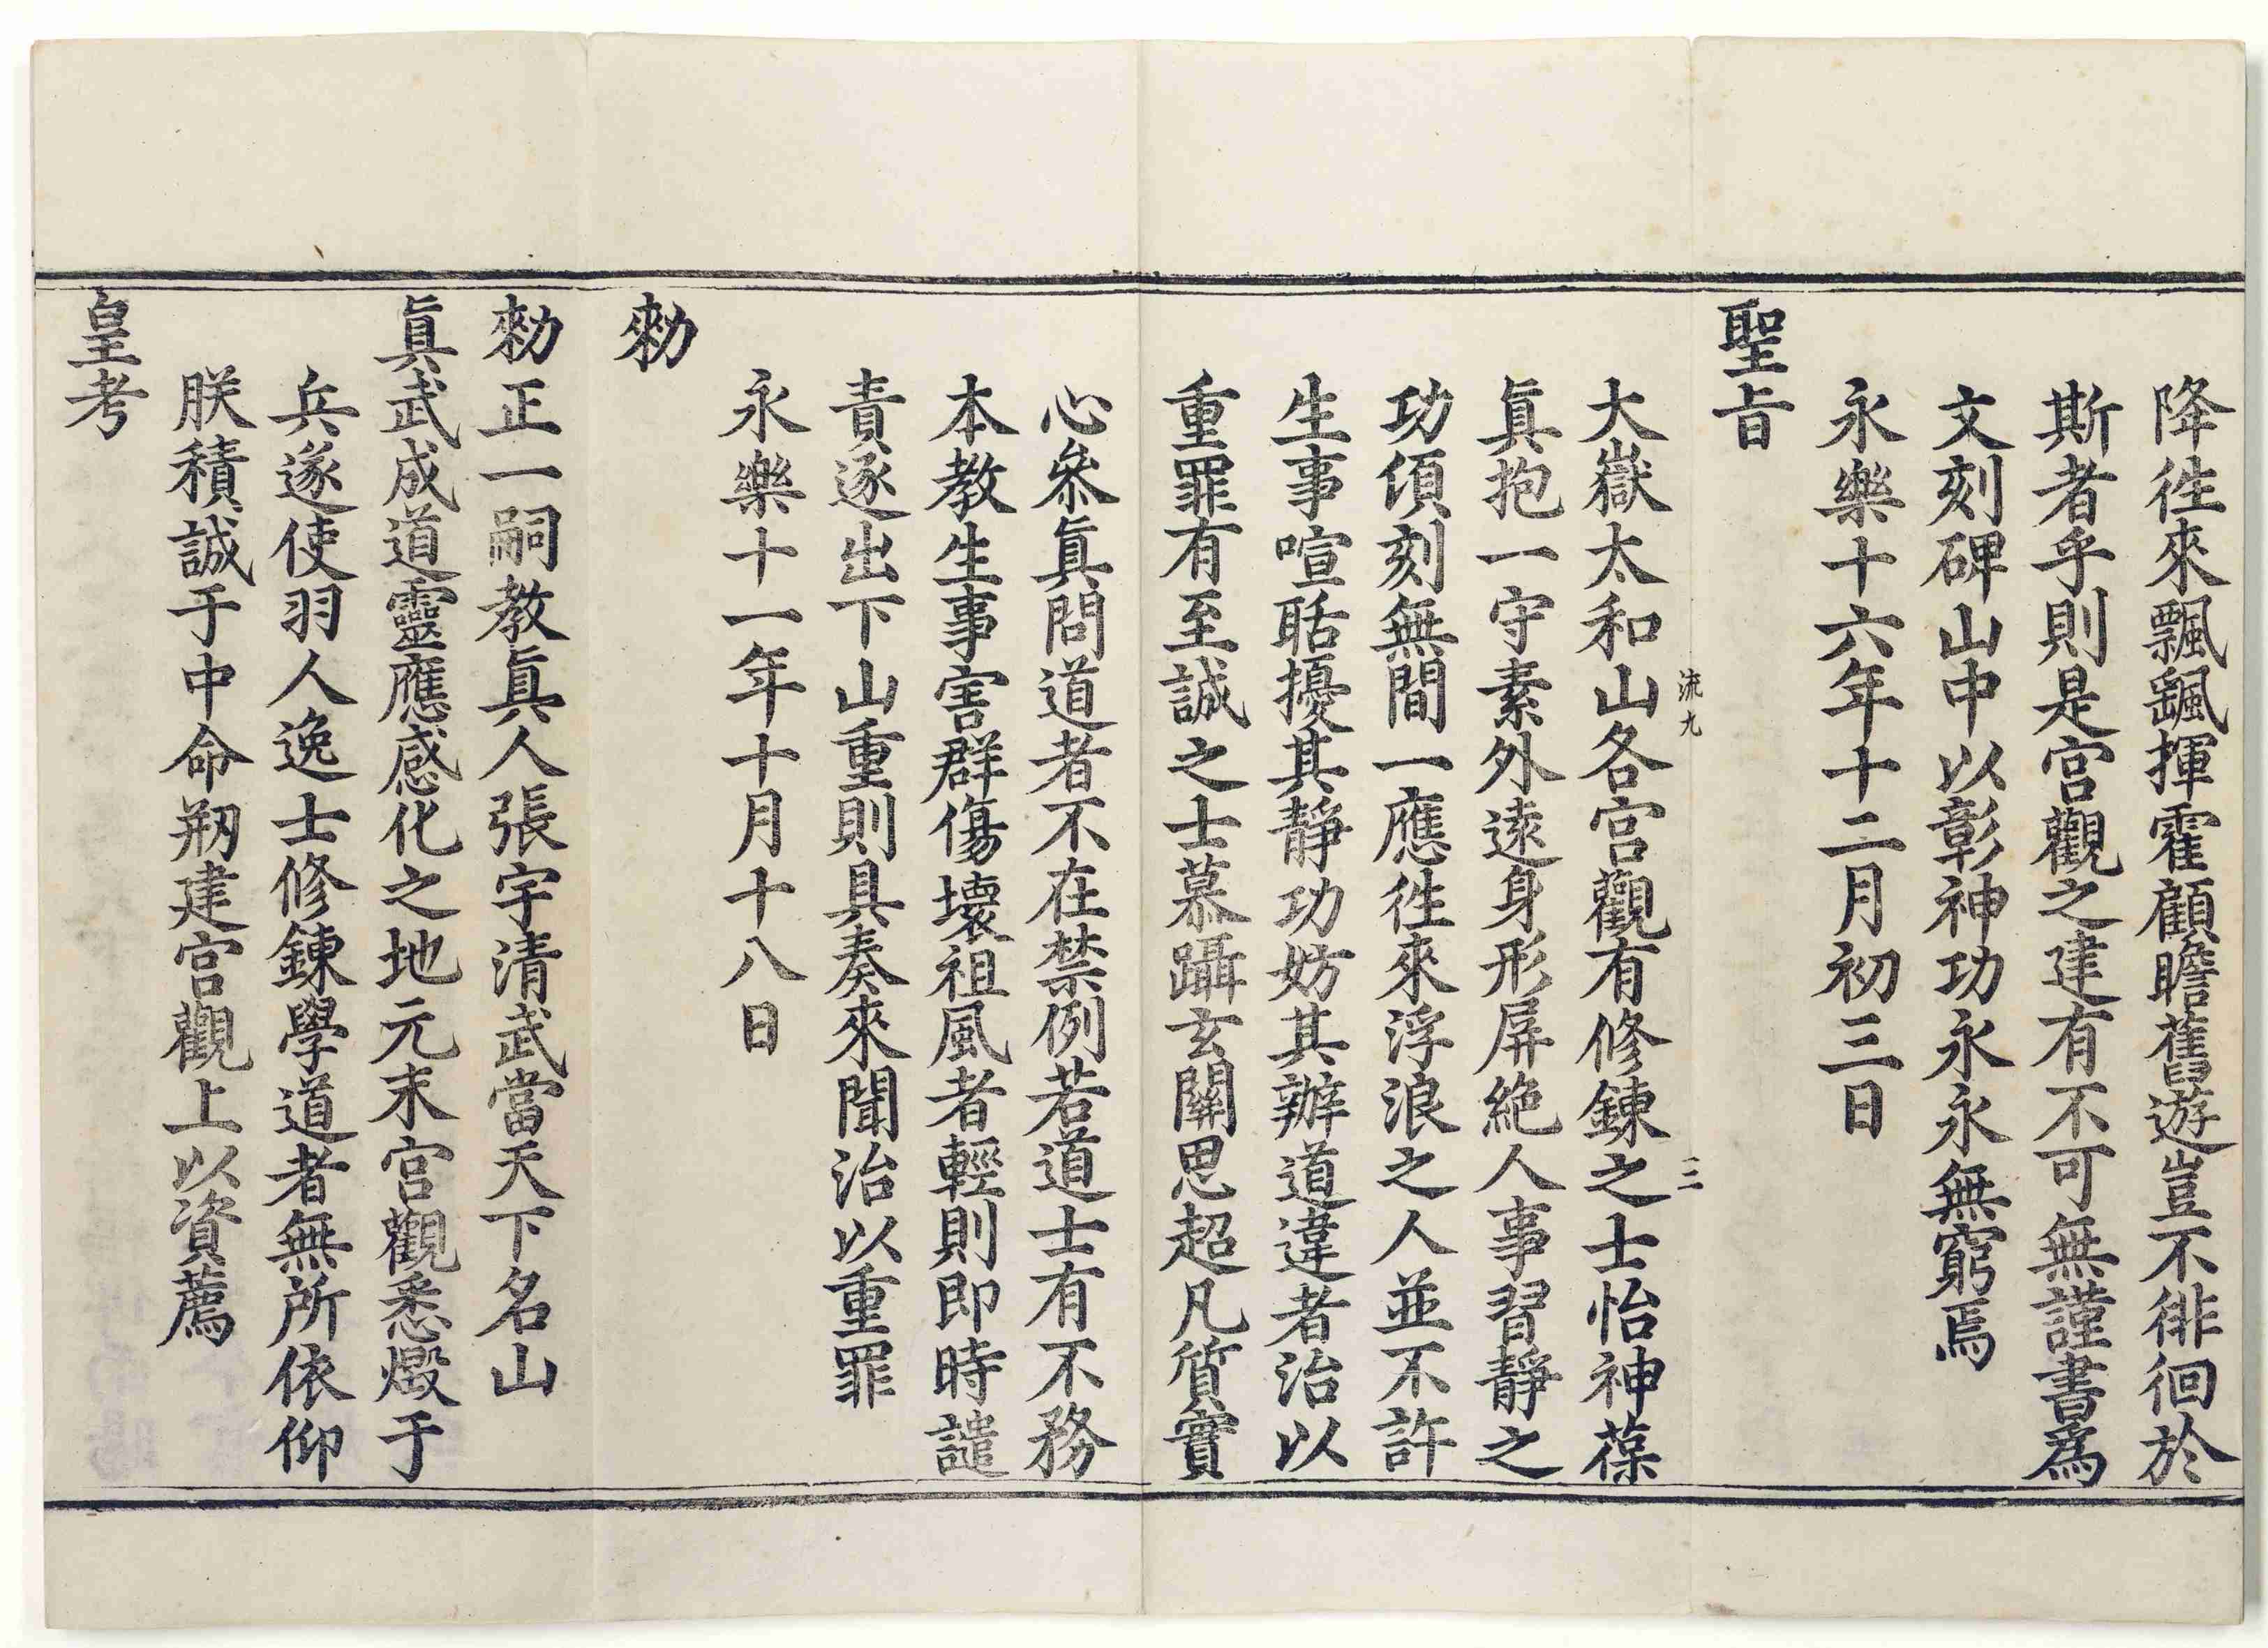 降徃來飄飄揮霍顧瞻舊遊豈不徘徊於
斯者乎則是宮觀之建有不可無謹書為
文刻碑山中以彰神功永永無窮焉
永樂十六年十二月初三日
聖旨
流九
三
大嶽太和山各宮觀有修鍊之士怡神葆
眞抱一守素外遠身形屏絶人事習靜之
功傾刻無間一應徃來浮浪之人並不許
生事喧聒擾其靜功妨其辦道違者治以
重罪有至誠之士慕躡玄關思超凡質實
心叅眞問道者不在禁例若道士有不務
本教生事害群傷壞祖風者輕則即時譴
責逐出下山重則具奏來聞治以重罪
永樂十一年十月十八日
勑
勑正一嗣教眞人張宇清武當天下名山
眞武成道靈應感化之地元末宮觀悉燬于
兵遂使羽人逸士修鍊學道者無所依仰
朕積誠于中命剏建宮觀上以資薦
皇考